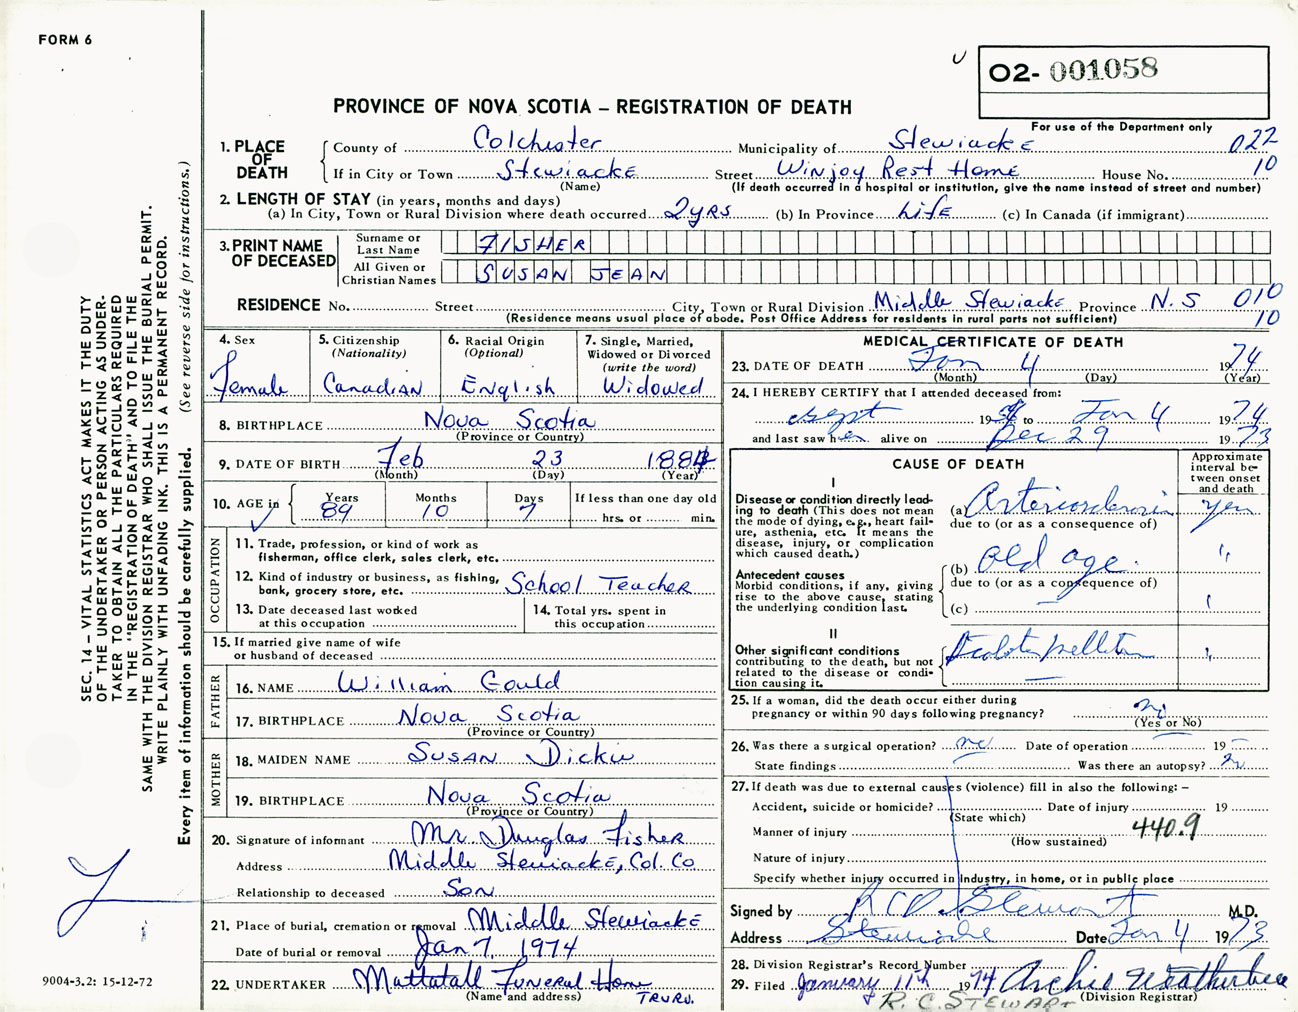 FORM 6
O2- 001058
PROVINCE OF NOVA SCOTIA – REGISTRATION OF DEATH
For use of the Department only
1. PLACE OF DEATH
County of Colchester Municipality of Stewiacke 022
If in City or Town Stewiacke Street Winjoy Rest Home House No. 10
(Name) (If death occurred in a hospital or institution, give the name instead of street and number)
2. LENGTH OF STAY (in years, months and days)
(a) In City, Town or Rural Division where death occurred 2 yrs (b) In Province Life (c) In Canada (if immigrant)
3. PRINT NAME OF DECEASED
Surname or Last Name FISHER
All Given or Christian Names SUSAN JEAN
RESIDENCE No. Street City, Town or Rural Division Middle Stewiacke Province N.S 010
(Residence means usual place of abode. Post Office Address for residents in rural parts not sufficient) 10
4. Sex
Female
5. Citizenship
(Nationality)
Canadian
6. Racial Origin
(Optional)
English
7. Single, Married, Widowed or Divorced
(write the word)
Widowed
8. BIRTHPLACE Nova Scotia
(Province or Country)
9. DATE OF BIRTH Feb 23 1884
(Month) (Day) (Year)
10. AGE in Years Months Days If less than one day old
89 10 7 hrs. or min.
OCCUPATION
11. Trade, profession, or kind of work as
fisherman, office clerk, sales clerk, etc.
12. Kind of industry or business, as fishing,
bank, grocery store, etc. School Teacher
13. Date deceased last worked
at this occupation
14. Total yrs. spent in
this occupation
15. If married give name of wife
or husband of deceased
FATHER
16. NAME William Gould
17. BIRTHPLACE Nova Scotia
(Province or Country)
MOTHER
18. MAIDEN NAME Susan Dickie
19. BIRTHPLACE Nova Scotia
(Province or Country)
20. Signature of informant Mr. Douglas Fisher
Address Middle Stewiacke, Col. Co.
Relationship to deceased Son
21. Place of burial, cremation or removal Middle Stewiacke
Date of burial or removal Jan 7, 1974
22. UNDERTAKER Mattatall Funeral Home
(Name and address) Truro.
MEDICAL CERTIFICATE OF DEATH
23. DATE OF DEATH Jan 4 1974
(Month) (Day) (Year)
24. I HEREBY CERTIFY that I attended deceased from:
Sept 19 to Jan 4 1974
and last saw her alive on Dec 29 1973
CAUSE OF DEATH
Approximate interval between onset and death
I
Disease or condition directly leading to death (This does not mean the mode of dying, e.g., heart failure, asthenia, etc. It means the disease, injury, or complication which caused death.)
(a) Arteriosclerosis
due to (or as a consequence of)
Antecedent causes
Morbid conditions, if any, giving rise to the above cause, stating the underlying condition last.
(b) old age.
due to (or as a consequence of)
(c)
II
Other significant conditions
contributing to the death, but not related to the disease or condition causing it.
25. If a woman, did the death occur either during
pregnancy or within 90 days following pregnancy? no
(Yes or No)
26. Was there a surgical operation? no Date of operation 19
State findings Was there an autopsy? no
27. If death was due to external causes (violence) fill in also the following: –
Accident, suicide or homicide? Date of injury 19
(State which)
Manner of injury 440.9
(How sustained)
Nature of injury
Specify whether injury occurred in Industry, in home, or in public place
Signed by R C D Stewart M.D.
Address Stewiacke Date Jan 4 1973
28. Division Registrar's Record Number
29. Filed January 11th 1974 Archie Weatherbee
(Division Registrar)
R. C. STEWART
SEC. 14 – VITAL STATISTICS ACT MAKES IT THE DUTY
OF THE UNDERTAKER OR PERSON ACTING AS UNDER-
TAKER TO OBTAIN ALL THE PARTICULARS REQUIRED
IN THE "REGISTRATION OF DEATH" AND TO FILE THE
SAME WITH THE DIVISION REGISTRAR WHO SHALL ISSUE THE BURIAL PERMIT.
WRITE PLAINLY WITH UNFADING INK. THIS IS A PERMANENT RECORD.
Every item of information should be carefully supplied. (See reverse side for instructions.)
9004-3.2: 15-12-72